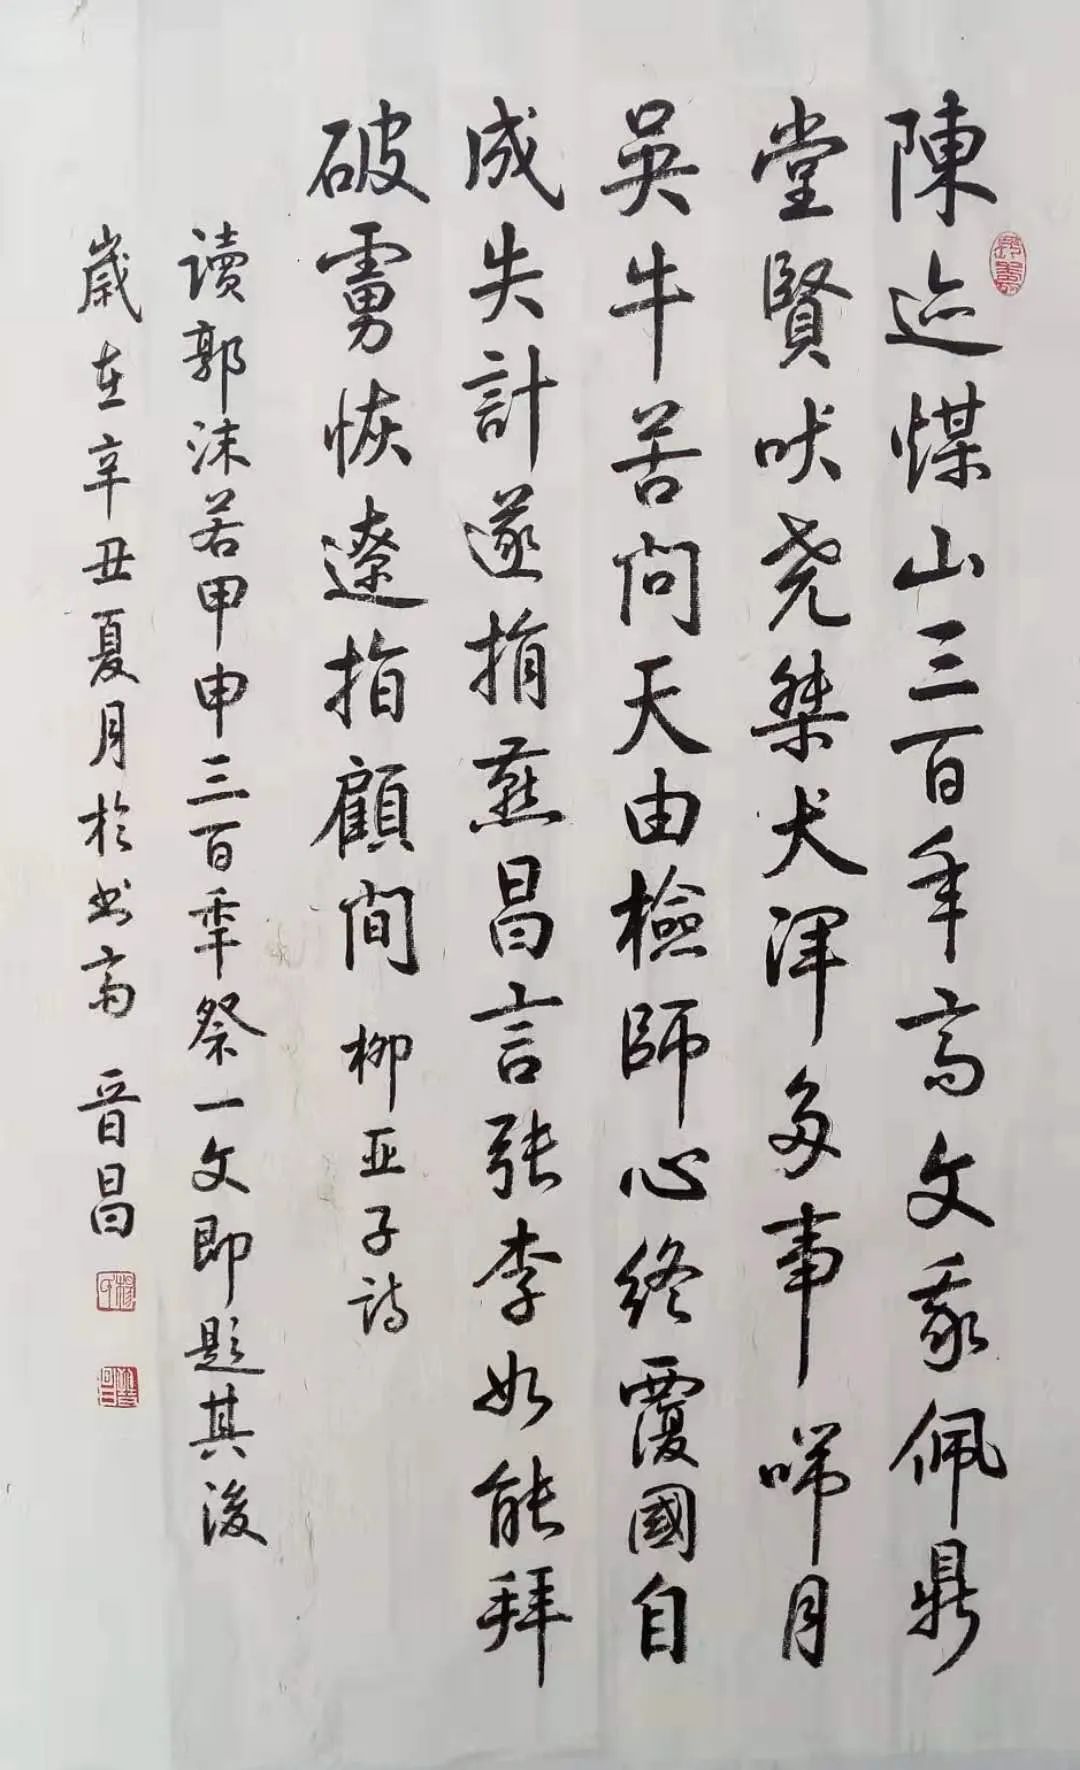 陳迹煤山三百年高文我佩鼎
堂賢吠尧桀犬渾多事喘月
吳牛苦問天由檢師心終覆國自
成失計遂捐燕昌言張李如能拜
破虜恢遼指顧間柳亚子詩
读郭沫若甲申三百年祭一文即题其後
歲在辛丑夏月於书斋晋昌